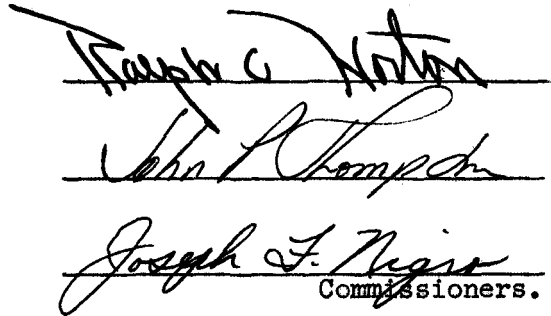 Ralph C Norton
John P Thompson
Joseph F. Nigro
Commissioners.